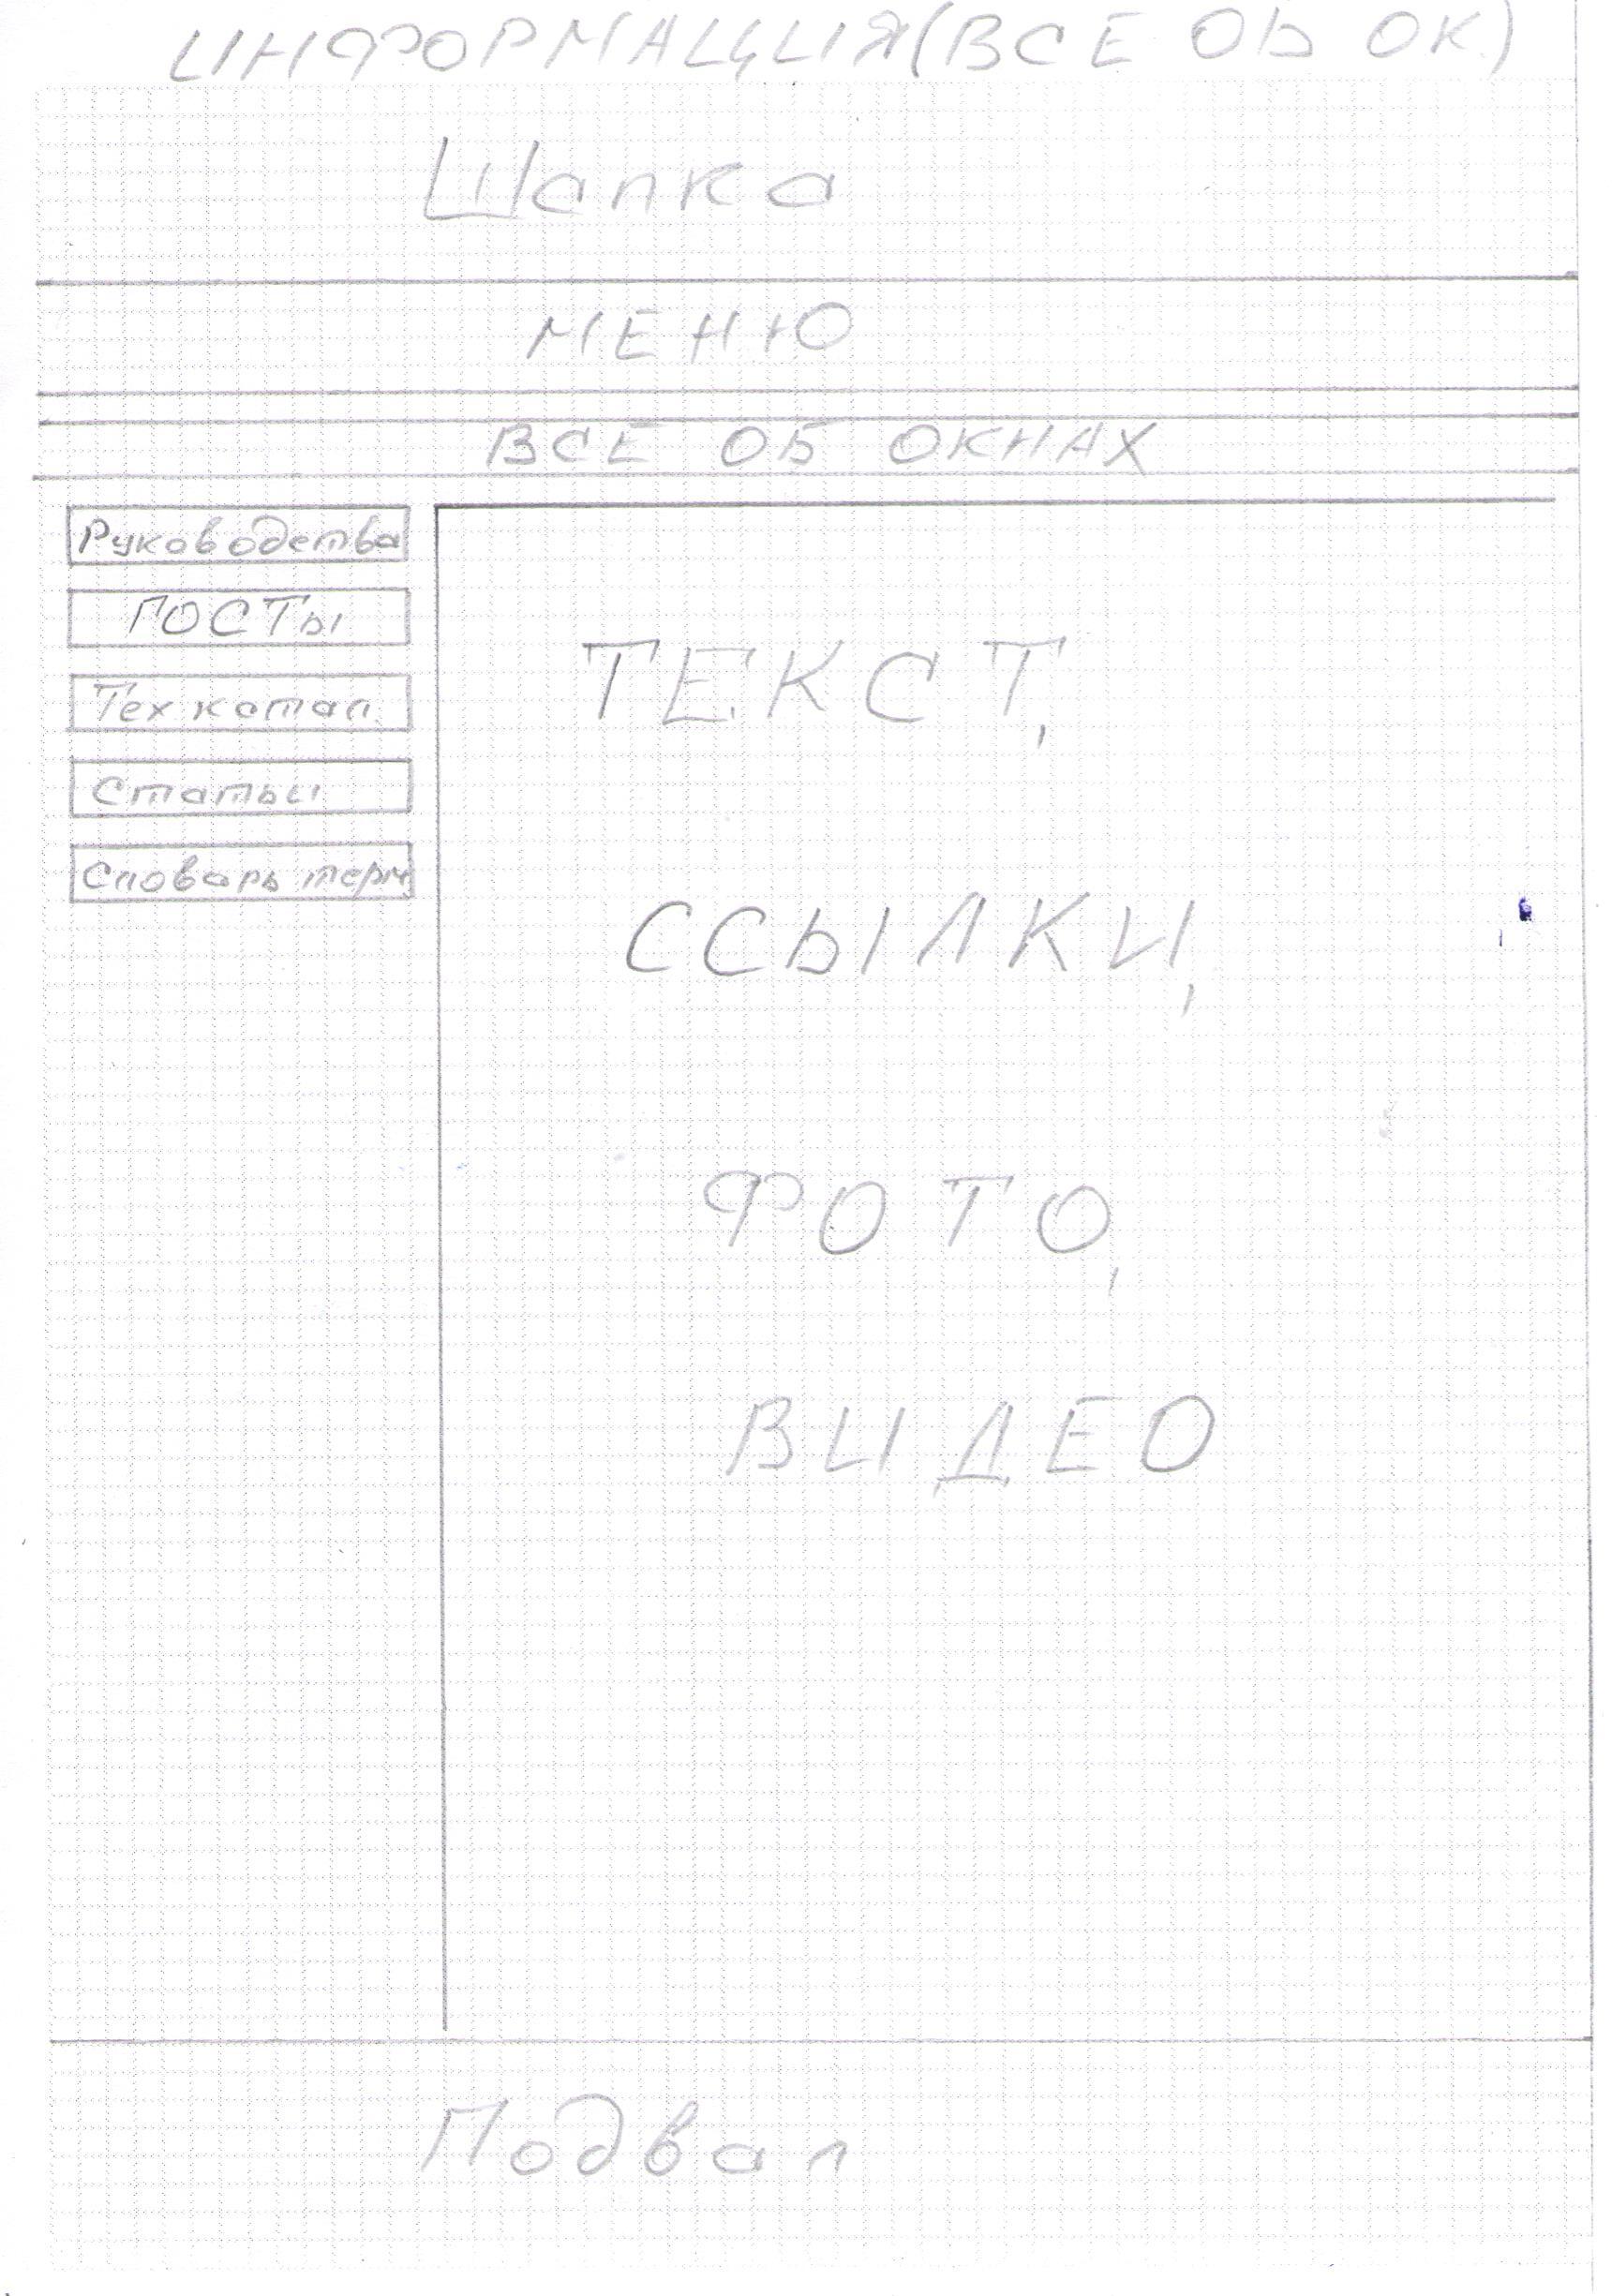 ИНФОРМАЦИЯ(ВСЕ ОБ ОК.)
Шапка
МЕНЮ
ВСЕ ОБ ОКНАХ
Руководства
ГОСТы
Тех катал.
Статьи
Словарь терм.
ТЕКСТ,
ССЫЛКИ,
ФОТО,
ВИДЕО
Подвал